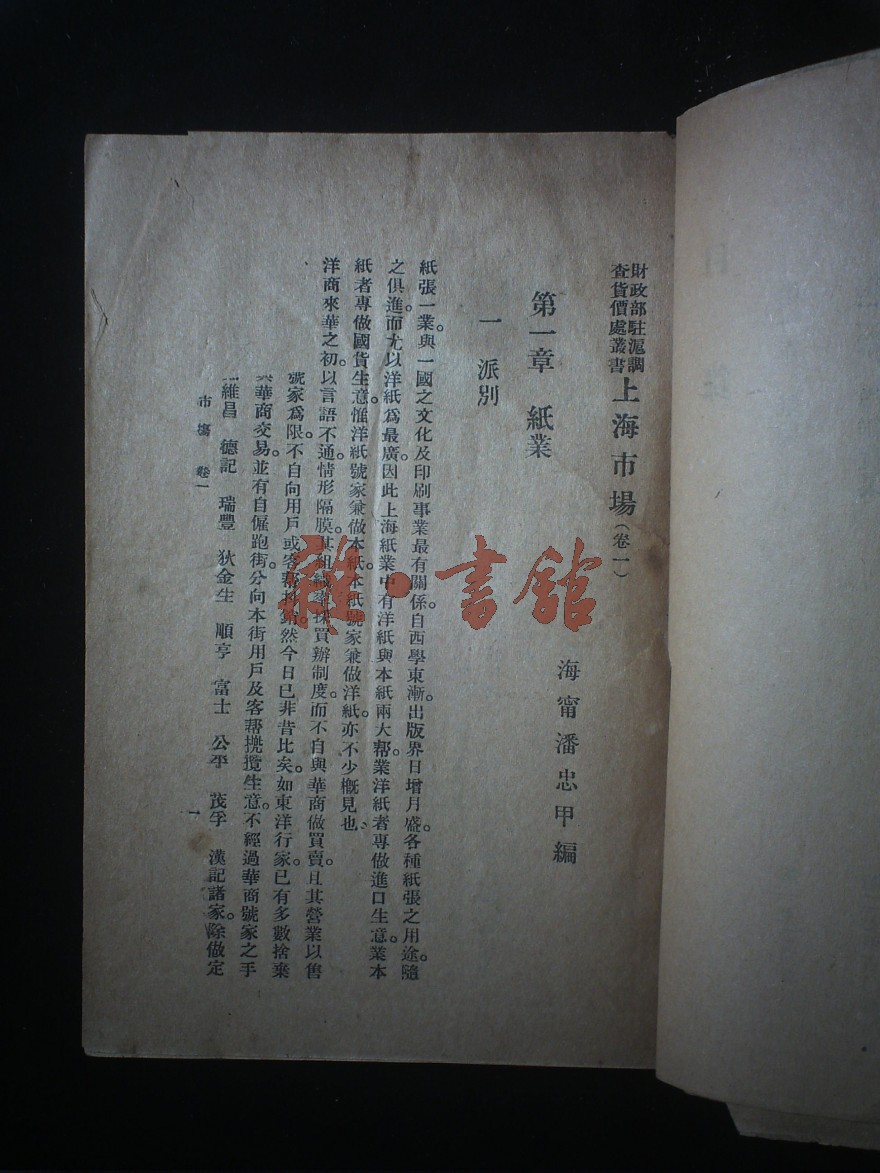 財政部駐滬調
查貨價處叢書
上海市場（卷一）
海甯潘忠甲編
第一章　紙業
一　派別
紙張一業。與一國之文化及印刷事業最有關係。自西學東漸。出版界日增月盛。各種紙張之用途。隨
之俱進。而尤以洋紙爲最廣。因此上海紙業中有洋紙與本紙兩大帮。業洋紙者專做進口生意。業本
紙者專做國貨生意。惟洋紙號家兼做本紙。本紙號家兼做洋紙。亦不少槪見也。
洋商來華之初。以言語不通。情形隔膜。其組織率採買辦制度。而不自與華商做買賣。且其營業以售
號家爲限。不自向用戶或客幫抖銷。然今日已非昔比矣。如東洋行家。已有多數捨棄
華商交易。並有自僱跑街。分向本街用戶及客帮攬生意。不經過華商號家之手
維昌　德記　瑞豐　狄金生　順亨　富士　公平　茂孚　漢記諸家。除做定
市場　卷一
一
雜·書舘